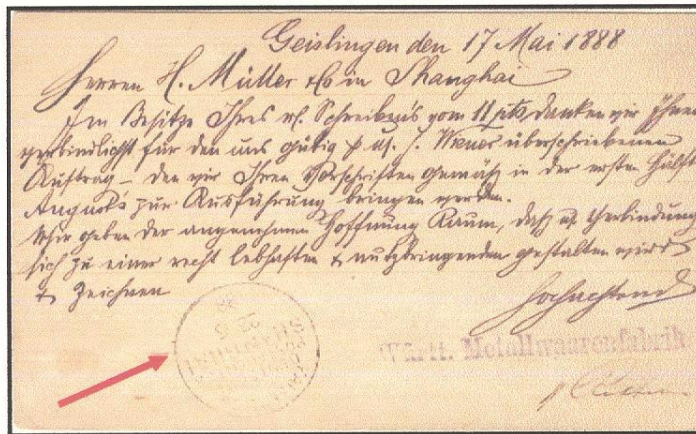 Geislingen den 17 Mai 1888
Herren H. Müller & Co in Shanghai
Im Besitze Ihres Schreibens vom 11 danken wir Ihnen
verbindlichst für den uns gütig p. J. Wiener überschriebenen
Auftrag – den wir Ihren Vorschriften gemäß in der ersten Hälfte
August's zur Ausführung bringen werden.
Wir geben der angenehmen Hoffnung Raum, daß Verbindung
sich zu einer recht lebhaften & nutzbringenden gestalten wird
& zeichnen
hochachtend
Württ. Metallwaarenfabrik